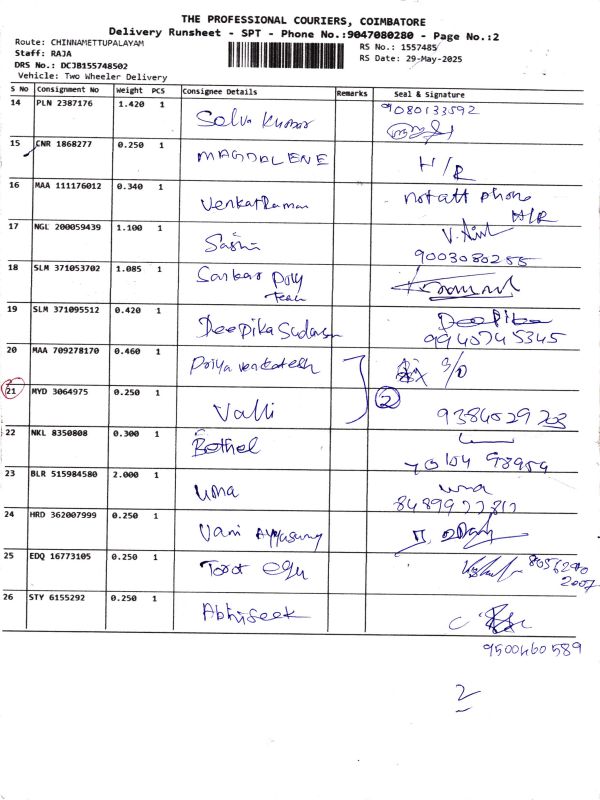 THE PROFESSIONAL COURIERS, COIMBATORE
Delivery Runsheet - SPT - Phone No.:9047080280 - Page No.:2
Route: CHINNAMETTUPALAYAM
Staff: RAJA
DRS No.: DCJB155748502
Vehicle: Two Wheeler Delivery
RS No.: 1557485
RS Date: 29-May-2025
S No Consignment No Weight PCS Consignee Details Remarks Seal & Signature
14 PLN 2387176 1.420 1 Selva Kumar 9080133592
15 CNR 1868277 0.250 1 MAGDALENE H/R
16 MAA 111176012 0.340 1 Venkatraman not att phone
H/R
17 NGL 200059439 1.100 1 Sashi
9003080255
18 SLM 371053702 1.085 1 Sankar Poly
Team
19 SLM 371095512 0.420 1 Deepika Sudarsan Deepika
9940745345
20 MAA 709278170 0.460 1 Priya venkatesh S/O
21 MYD 3064975 0.250 1 Valli 2 9384029203
22 NKL 8350808 0.300 1 Bethel
23 BLR 515984580 2.000 1 Uma uma
8489977817
24 HRD 362007999 0.250 1 Vani Ayyasamy
25 EDQ 16773105 0.250 1 Tarot
26 STY 6155292 0.250 1 Abhiseek
9500460589
2